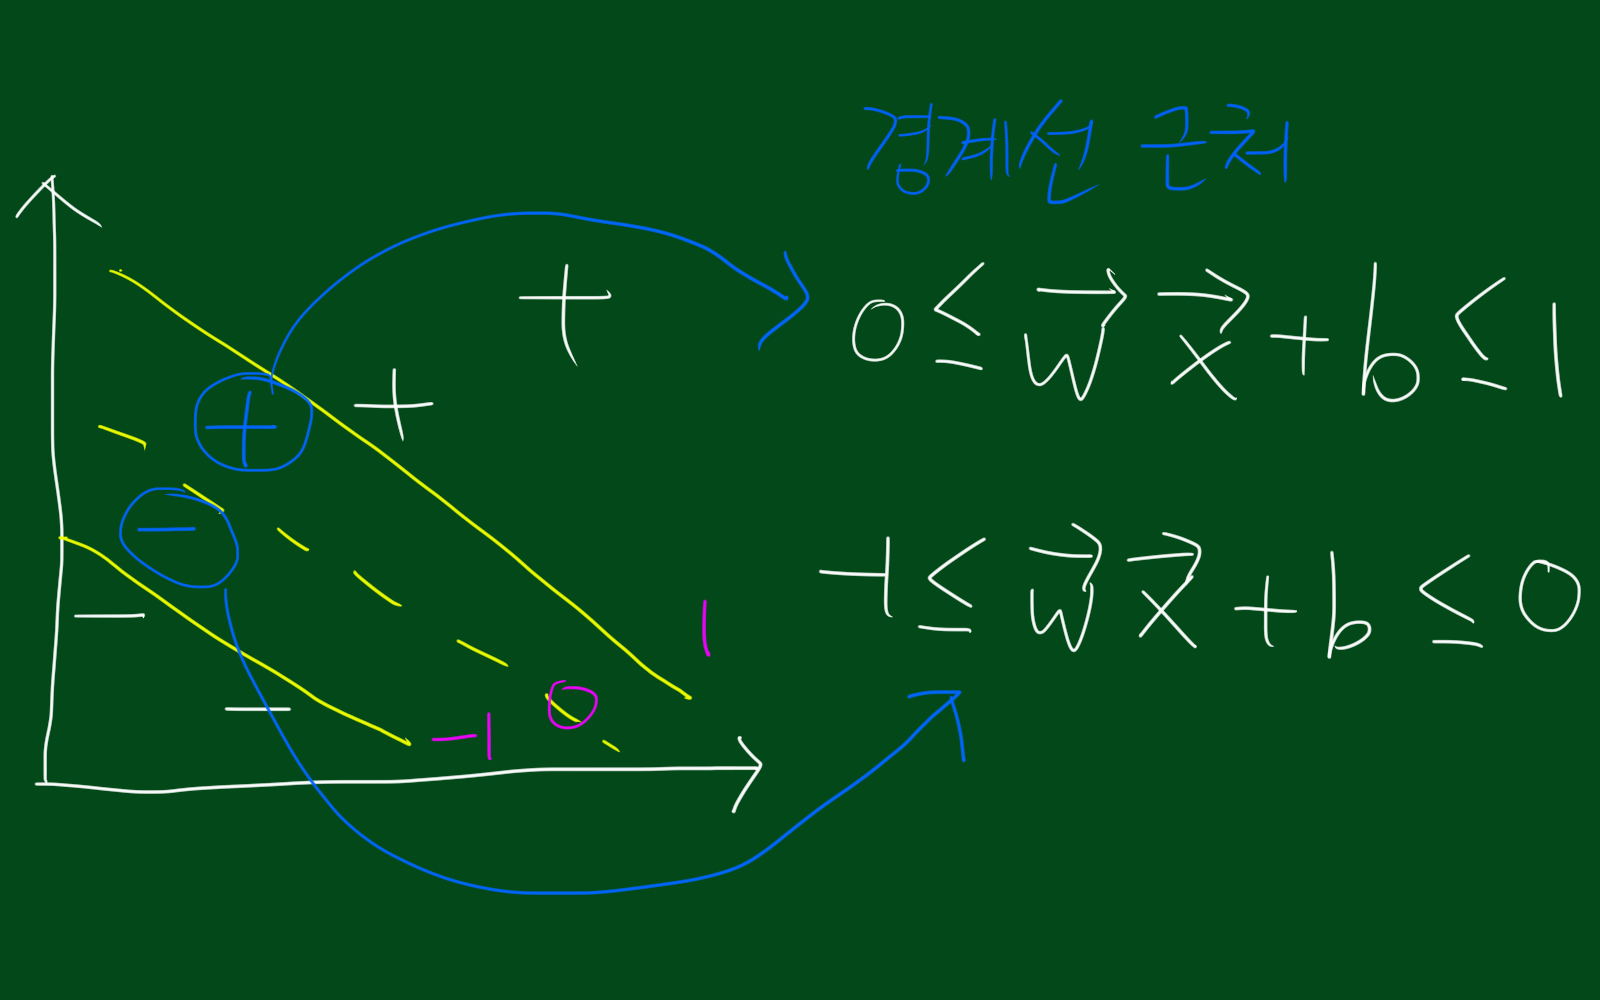 경계선 근처
+
0 ≤ w⃗ x⃗ + b ≤ 1
+
+
−
-1 ≤ w⃗ x⃗ + b ≤ 0
−
1
−
0
-1